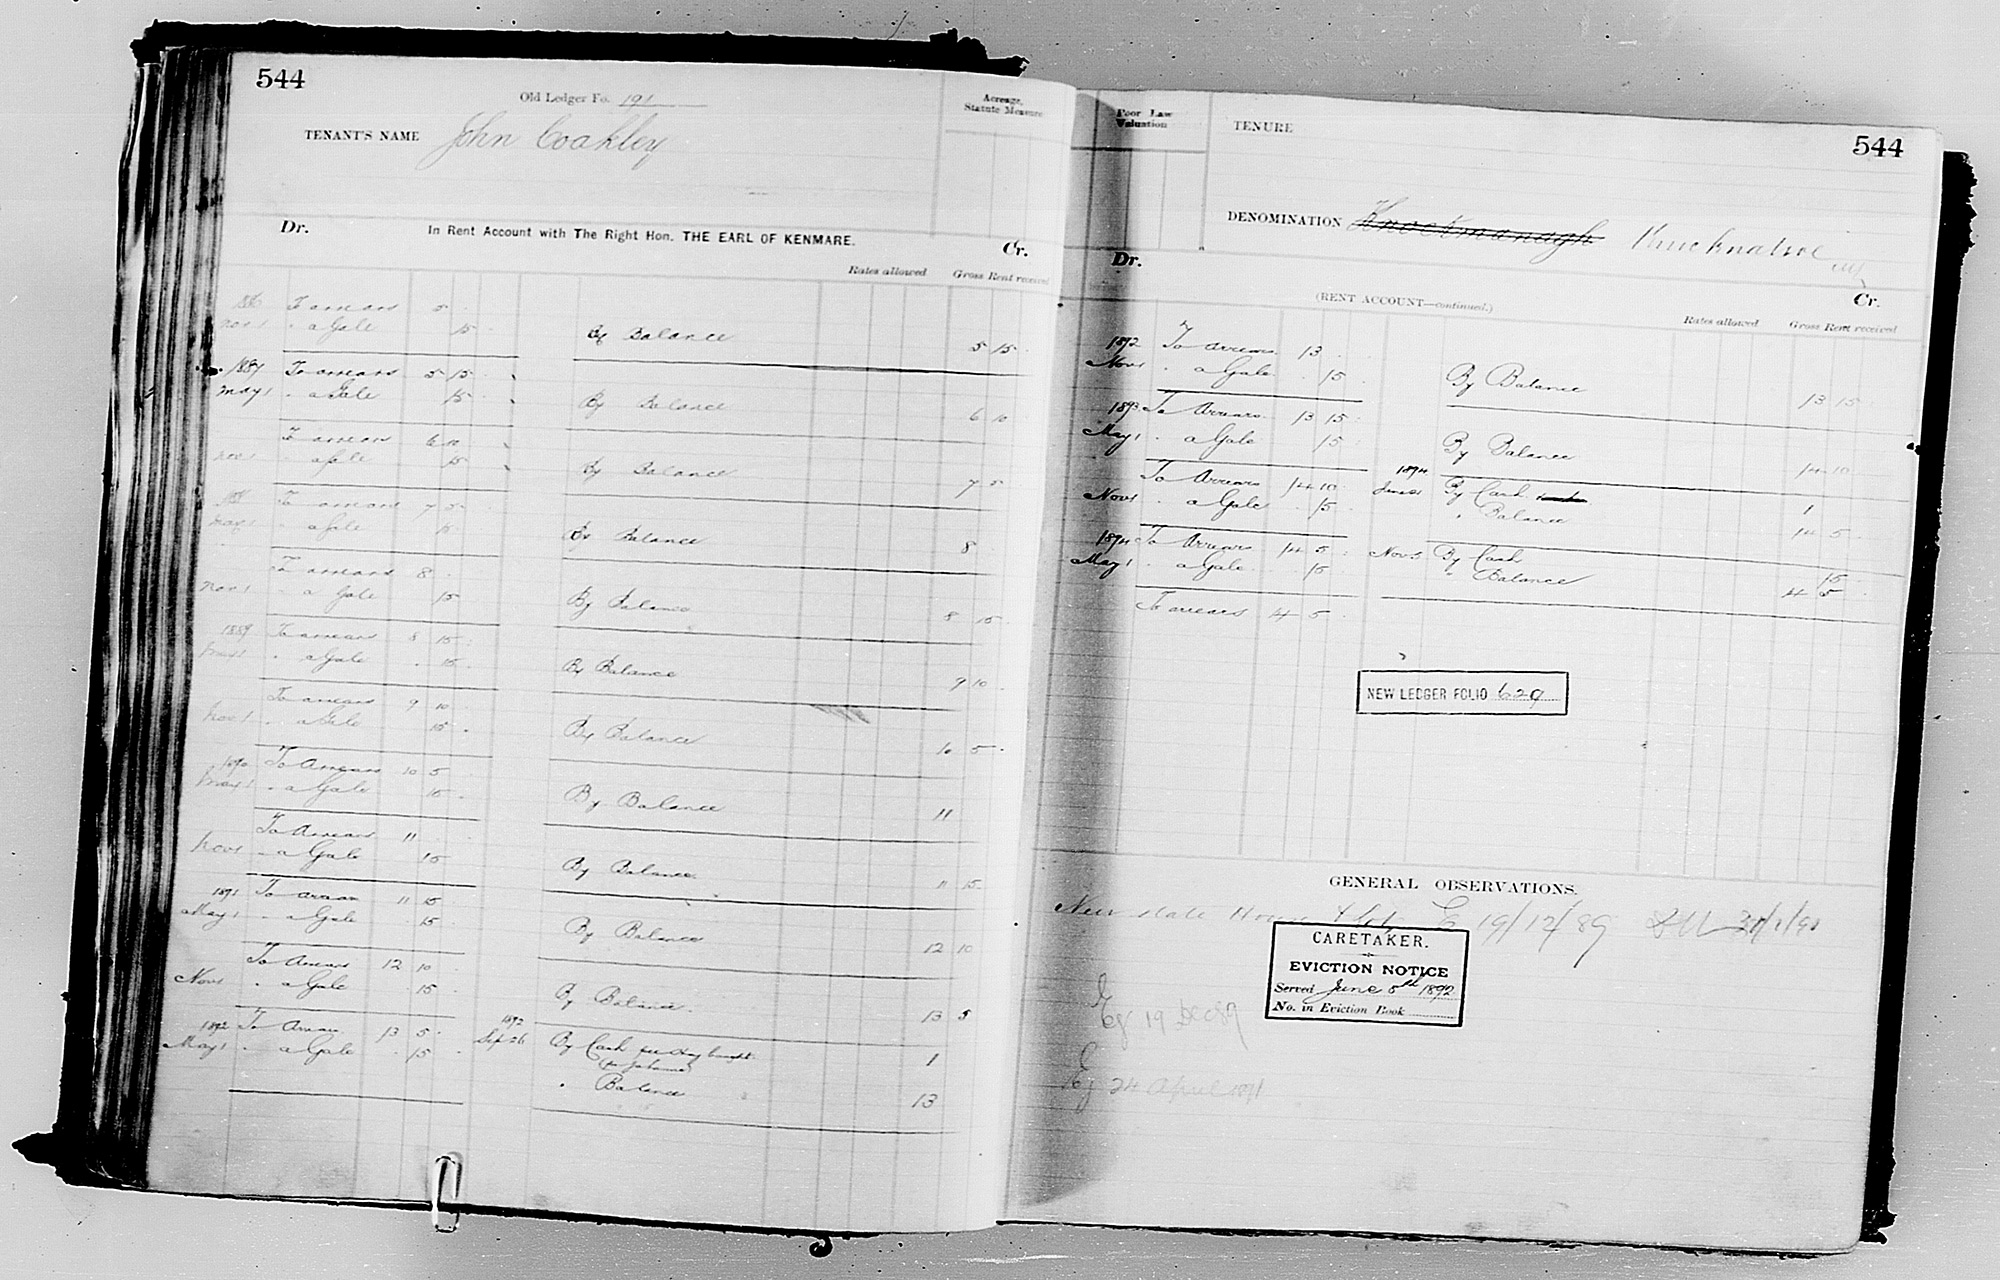 544
Old Ledger Fo. 191
TENANT'S NAME John Coakley
Acreage, Statute Measure
Dr. In Rent Account with The Right Hon. THE EARL OF KENMARE. Cr.
Rates allowed Gross Rent received
To arrears 5
Nov 1 " a Gale 15 By Balance 5 15
1887 To arrears 5 15
May 1 " a Gale 15 By Balance 6 10
To arrears 6 10
Nov 1 " a Gale 15 By Balance 7 5
To arrears 7 5
May 1 " a Gale 15 By Balance 8
To arrears 8
Nov 1 " a Gale 15 By Balance 8 15
1889 To arrears 8 15
May 1 " a Gale 15 By Balance 9 10
To arrears 9 10
Nov 1 " a Gale 15 By Balance 10 5
1890 To Arrears 10 5
May 1 " a Gale 15 By Balance 11
To Arrears 11
Nov 1 " a Gale 15 By Balance 11 15
1891 To Arrears 11 15
May 1 " a Gale 15 By Balance 12 10
To Arrears 12 10
Nov 1 " a Gale 15 By Balance 13 5
1892 To Arrears 13 5 1892
May 1 " a Gale 15 Sep 26 By Cash per Hay bought 1
" Balance 13
Poor Law Valuation
TENURE
544
DENOMINATION Knockmanagh
Dr. (RENT ACCOUNT—continued.) Cr.
Rates allowed Gross Rent received
1892 To arrears 13
Nov 1 " a Gale 15 By Balance 13 15
1893 To Arrears 13 15
May 1 " a Gale 15 By Balance 14 10
To Arrears 14 10 1894 By Cash 1
Nov 1 " a Gale 15 " Balance 14 5
1894 To Arrears 14 5 Nov 5 By Cash 15
May 1 " a Gale 15 " Balance 4 5
To arrears 4 5
NEW LEDGER FOLIO 629
GENERAL OBSERVATIONS.
New slate House 19/12/89
CARETAKER.
EVICTION NOTICE
Served June 8th 1892
No. in Eviction Book
19 Dec 89
24 April 1891